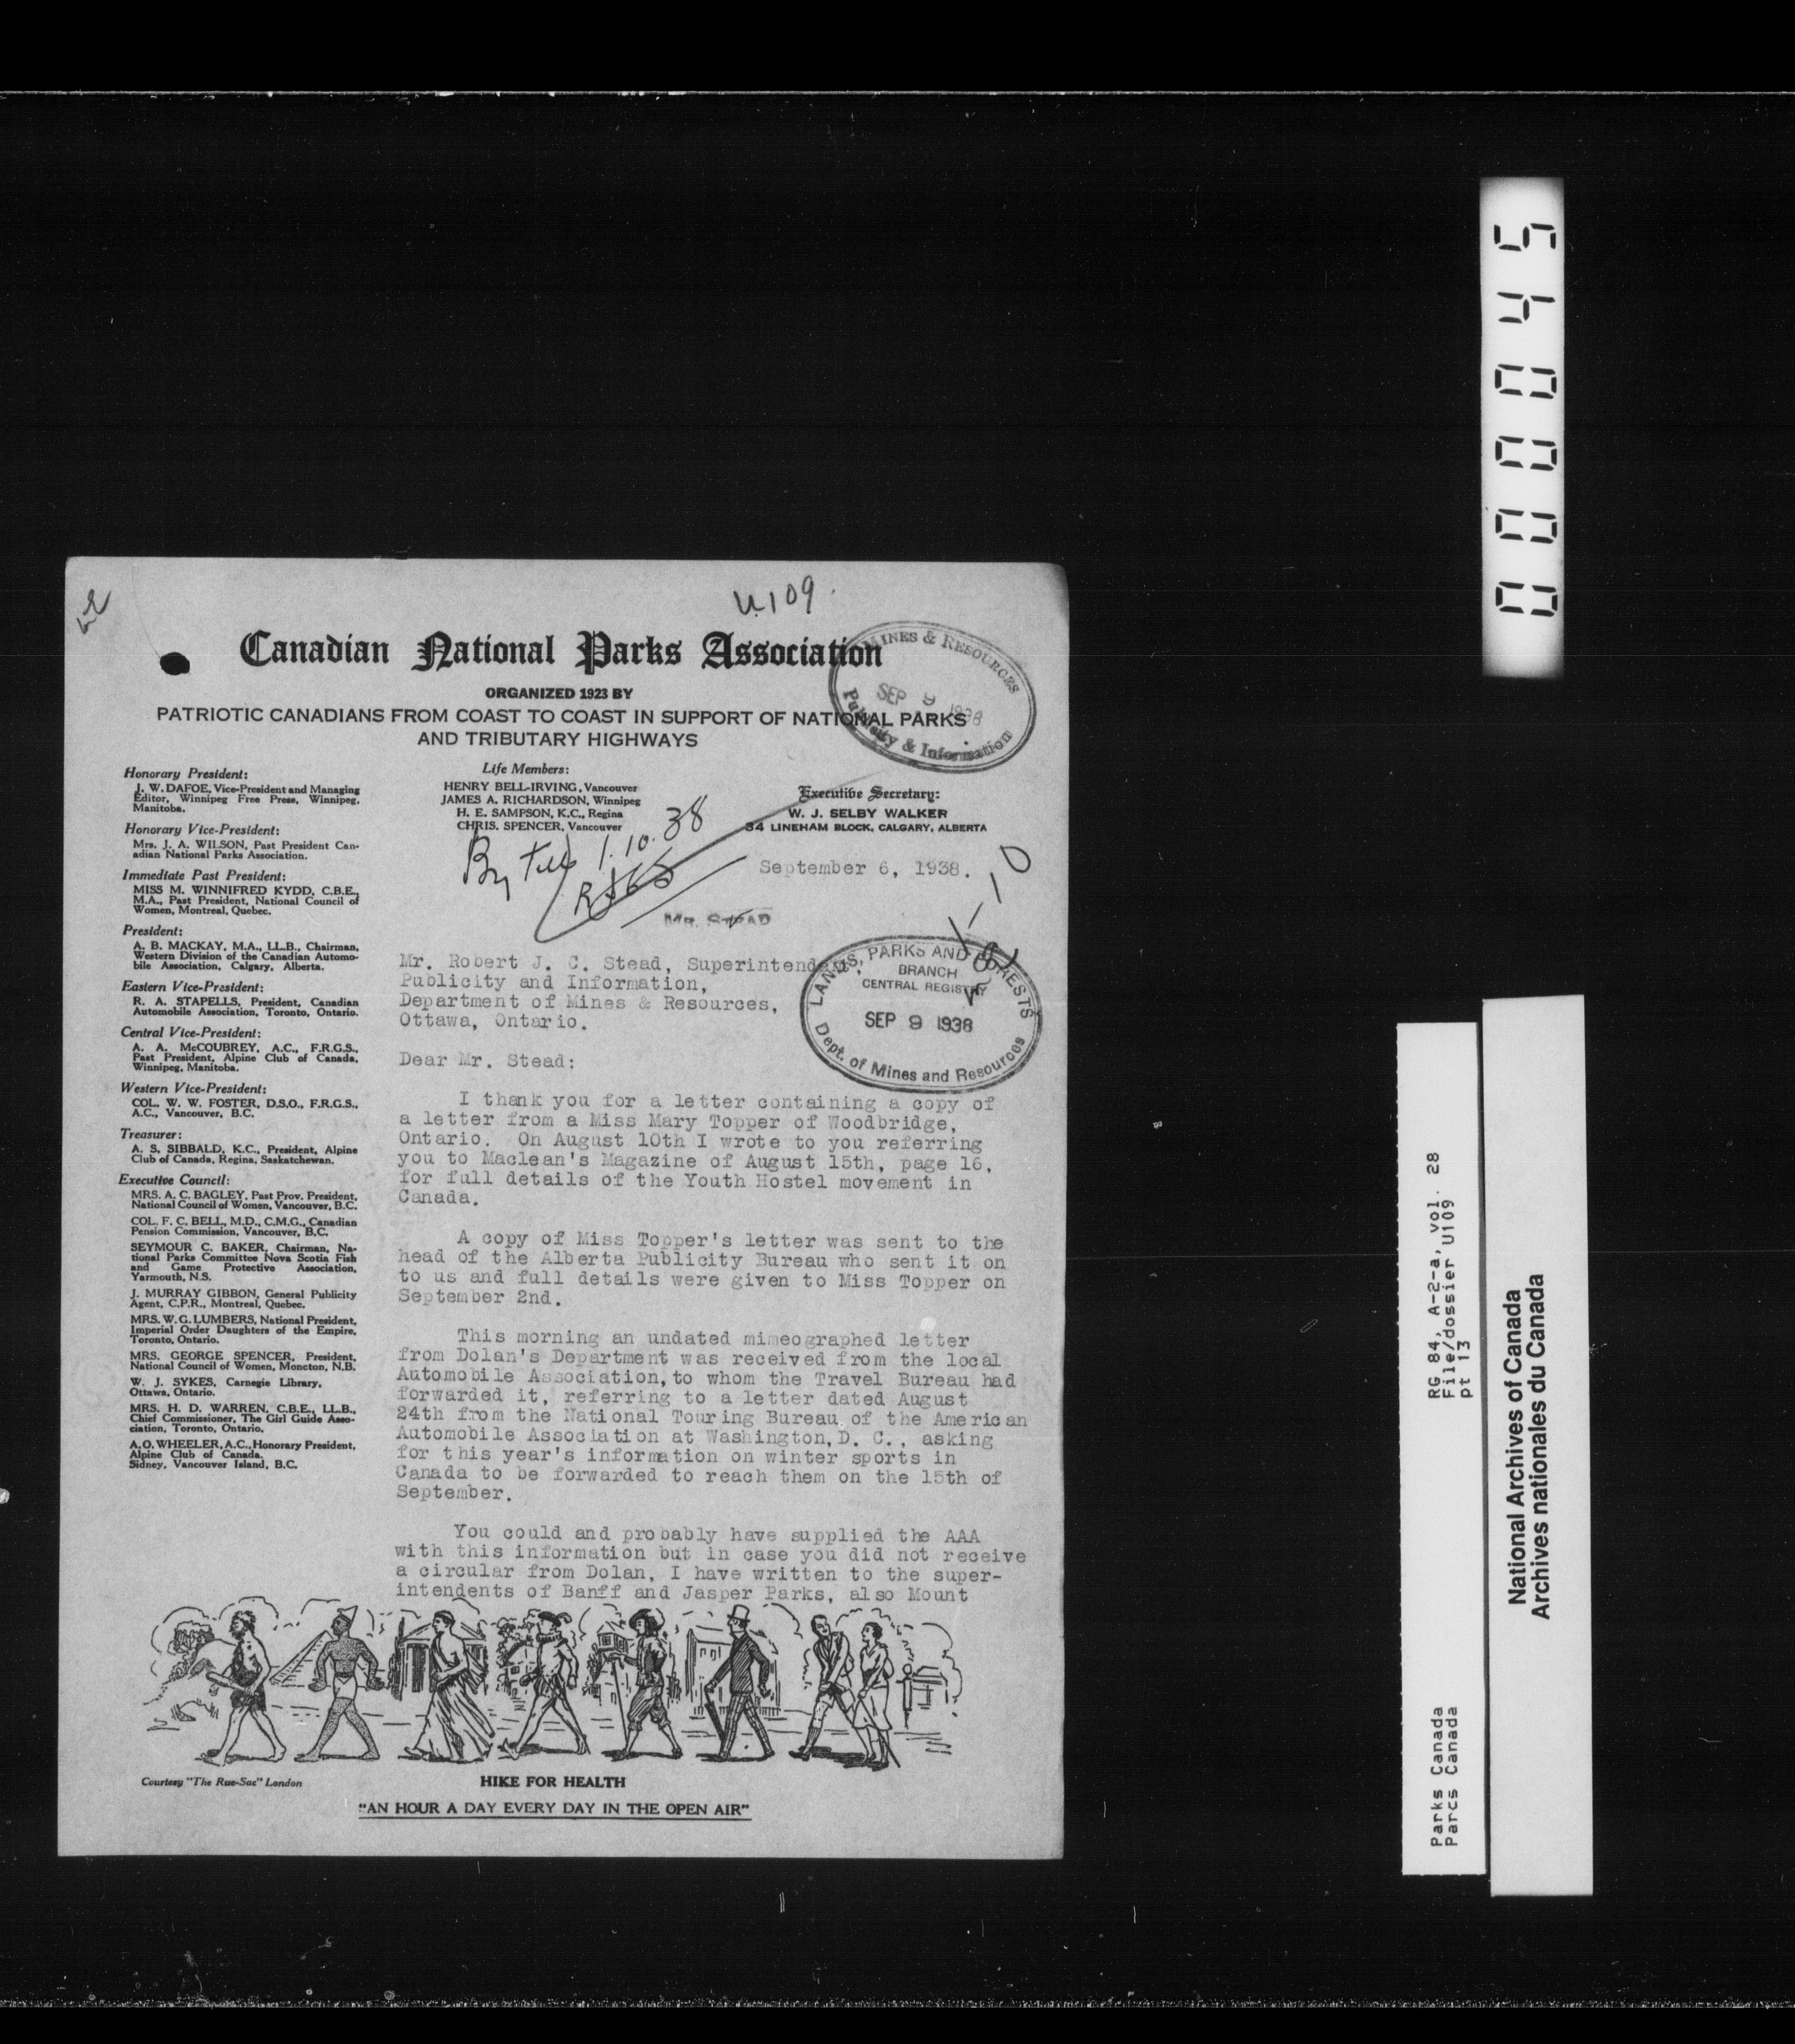 U109.
Canadian National Parks Association
ORGANIZED 1923 BY
PATRIOTIC CANADIANS FROM COAST TO COAST IN SUPPORT OF NATIONAL PARKS
AND TRIBUTARY HIGHWAYS
MINES & RESOURCES
SEP 9 1938
Publicity & Information
Honorary President:
J. W. DAFOE, Vice-President and Managing
Editor, Winnipeg Free Press, Winnipeg,
Manitoba.
Honorary Vice-President:
Mrs. J. A. WILSON, Past President Can-
adian National Parks Association.
Immediate Past President:
MISS M. WINNIFRED KYDD, C.B.E.,
M.A., Past President, National Council of
Women, Montreal, Quebec.
President:
A. B. MACKAY, M.A., LL.B., Chairman,
Western Division of the Canadian Automo-
bile Association, Calgary, Alberta.
Eastern Vice-President:
R. A. STAPELLS, President, Canadian
Automobile Association, Toronto, Ontario.
Central Vice-President:
A. A. McCOUBREY, A.C., F.R.G.S.,
Past President, Alpine Club of Canada,
Winnipeg, Manitoba.
Western Vice-President:
COL. W. W. FOSTER, D.S.O., F.R.G.S.,
A.C., Vancouver, B.C.
Treasurer:
A. S. SIBBALD, K.C., President, Alpine
Club of Canada, Regina, Saskatchewan.
Executive Council:
MRS. A. C. BAGLEY, Past Prov. President,
National Council of Women, Vancouver, B.C.
COL. F. C. BELL, M.D., C.M.G., Canadian
Pension Commission, Vancouver, B.C.
SEYMOUR C. BAKER, Chairman, Na-
tional Parks Committee Nova Scotia Fish
and Game Protective Association,
Yarmouth, N.S.
J. MURRAY GIBBON, General Publicity
Agent, C.P.R., Montreal, Quebec.
MRS. W. G. LUMBERS, National President,
Imperial Order Daughters of the Empire,
Toronto, Ontario.
MRS. GEORGE SPENCER, President,
National Council of Women, Moncton, N.B.
W. J. SYKES, Carnegie Library,
Ottawa, Ontario.
MRS. H. D. WARREN, C.B.E., LL.B.,
Chief Commissioner, The Girl Guide Asso-
ciation, Toronto, Ontario.
A. O. WHEELER, A.C., Honorary President,
Alpine Club of Canada,
Sidney, Vancouver Island, B.C.
Life Members:
HENRY BELL-IRVING, Vancouver
JAMES A. RICHARDSON, Winnipeg
H. E. SAMPSON, K.C., Regina
CHRIS. SPENCER, Vancouver
Executive Secretary:
W. J. SELBY WALKER
34 LINEHAM BLOCK, CALGARY, ALBERTA
1.10.38
September 6, 1938.
MR. STEAD
LANDS, PARKS AND FORESTS
BRANCH
CENTRAL REGISTRY
SEP 9 1938
Dept. of Mines and Resources
Mr. Robert J. C. Stead, Superintendent,
Publicity and Information,
Department of Mines & Resources,
Ottawa, Ontario.
Dear Mr. Stead:
I thank you for a letter containing a copy of
a letter from a Miss Mary Topper of Woodbridge,
Ontario. On August 10th I wrote to you referring
you to Maclean's Magazine of August 15th, page 16,
for full details of the Youth Hostel movement in
Canada.
A copy of Miss Topper's letter was sent to the
head of the Alberta Publicity Bureau who sent it on
to us and full details were given to Miss Topper on
September 2nd.
This morning an undated mimeographed letter
from Dolan's Department was received from the local
Automobile Association, to whom the Travel Bureau had
forwarded it, referring to a letter dated August
24th from the National Touring Bureau of the American
Automobile Association at Washington, D. C., asking
for this year's information on winter sports in
Canada to be forwarded to reach them on the 15th of
September.
You could and probably have supplied the AAA
with this information but in case you did not receive
a circular from Dolan, I have written to the super-
intendents of Banff and Jasper Parks, also Mount
Courtesy "The Ruc-Sac" London
HIKE FOR HEALTH
"AN HOUR A DAY EVERY DAY IN THE OPEN AIR"
000045
Parks Canada RG 84, A-2-a, vol. 28
Parcs Canada File/dossier U109
pt 13
National Archives of Canada
Archives nationales du Canada